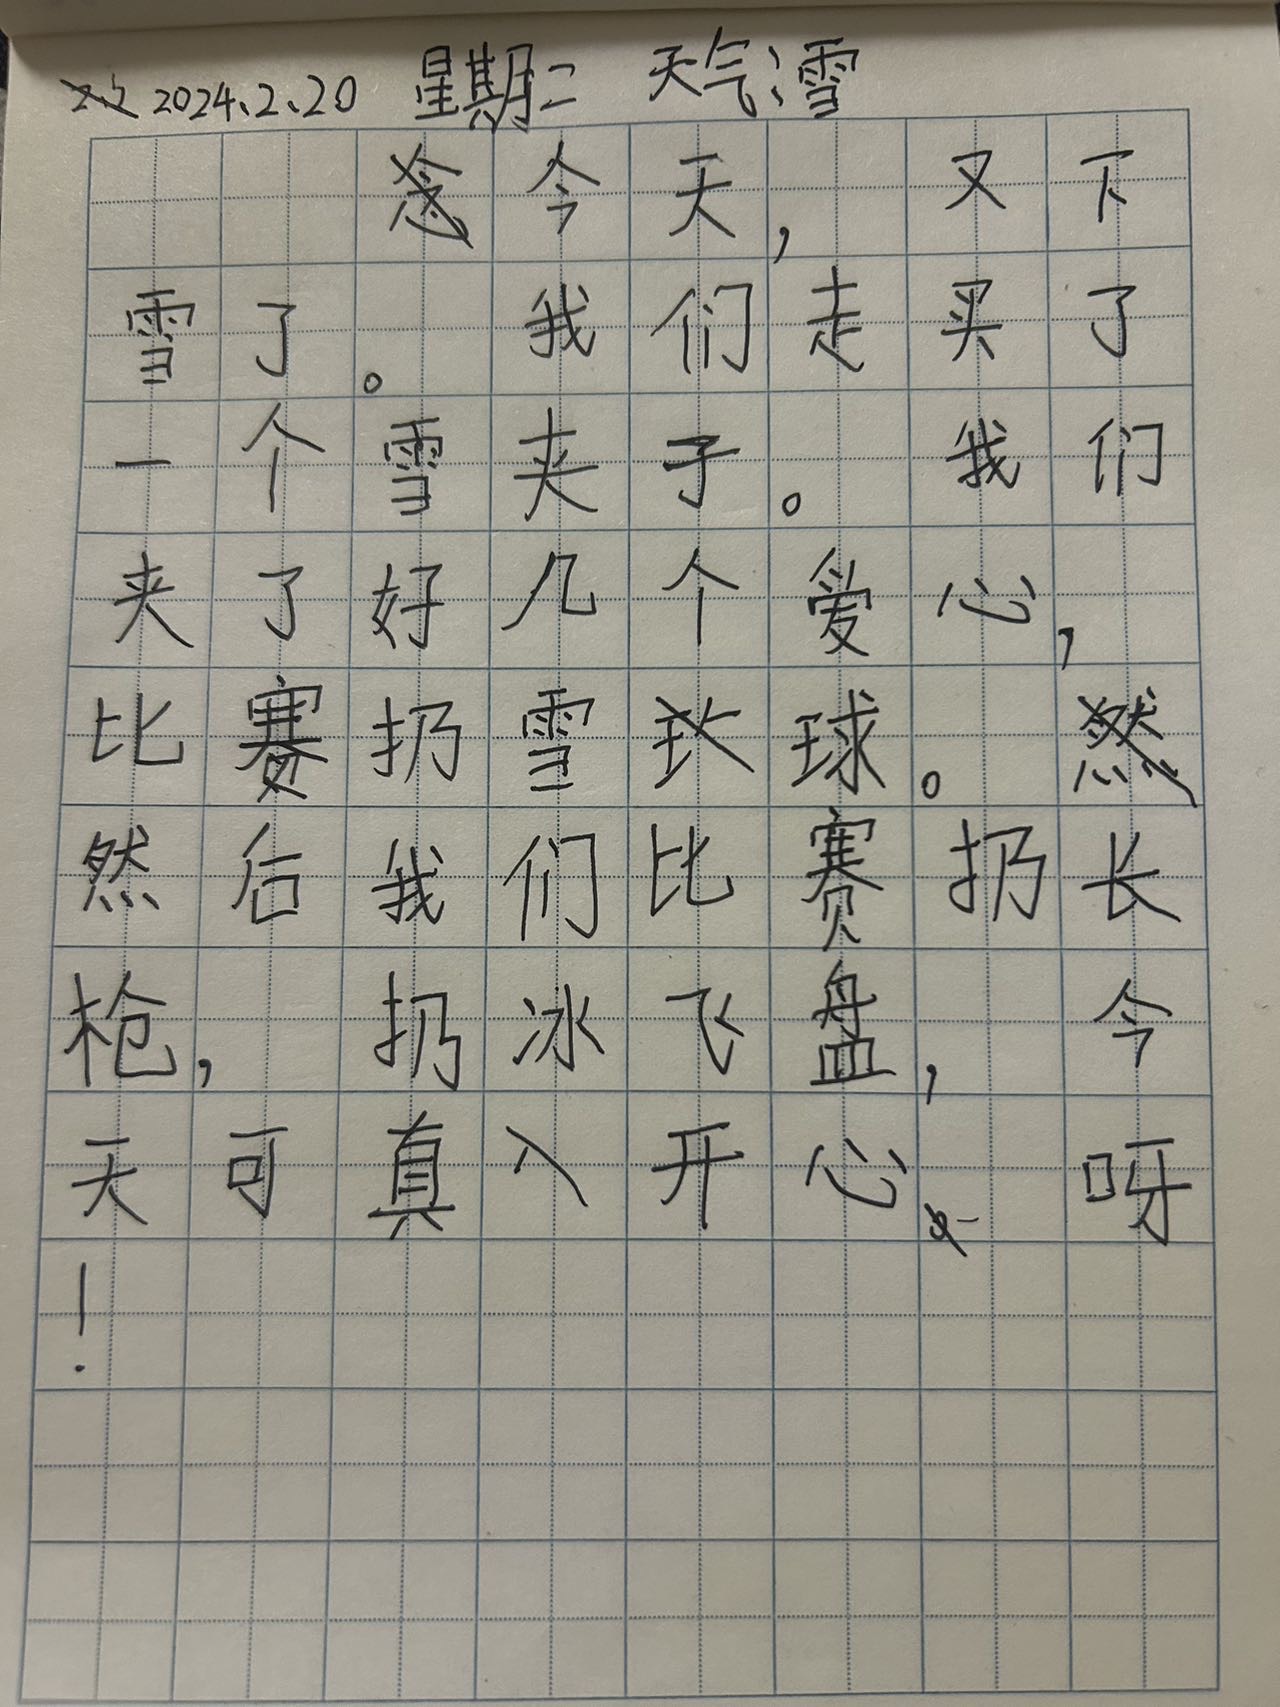 2024.2.20 星期二 天气:雪
今天，又下
雪了。我们走买了
一个雪夹子。我们
夹了好几个爱心，
比赛扔雪球。
然后我们比赛扔长
枪，扔冰飞盘，今
天可真入开心呀
！